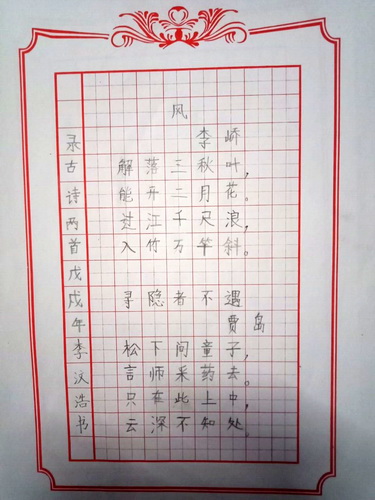 风
李峤
解落三秋叶，
能开二月花。
过江千尺浪，
入竹万竿斜。
寻隐者不遇
贾岛
松下问童子，
言师采药去。
只在此上中，
云深不知处。
录古诗两首戊戌年李汶浩书